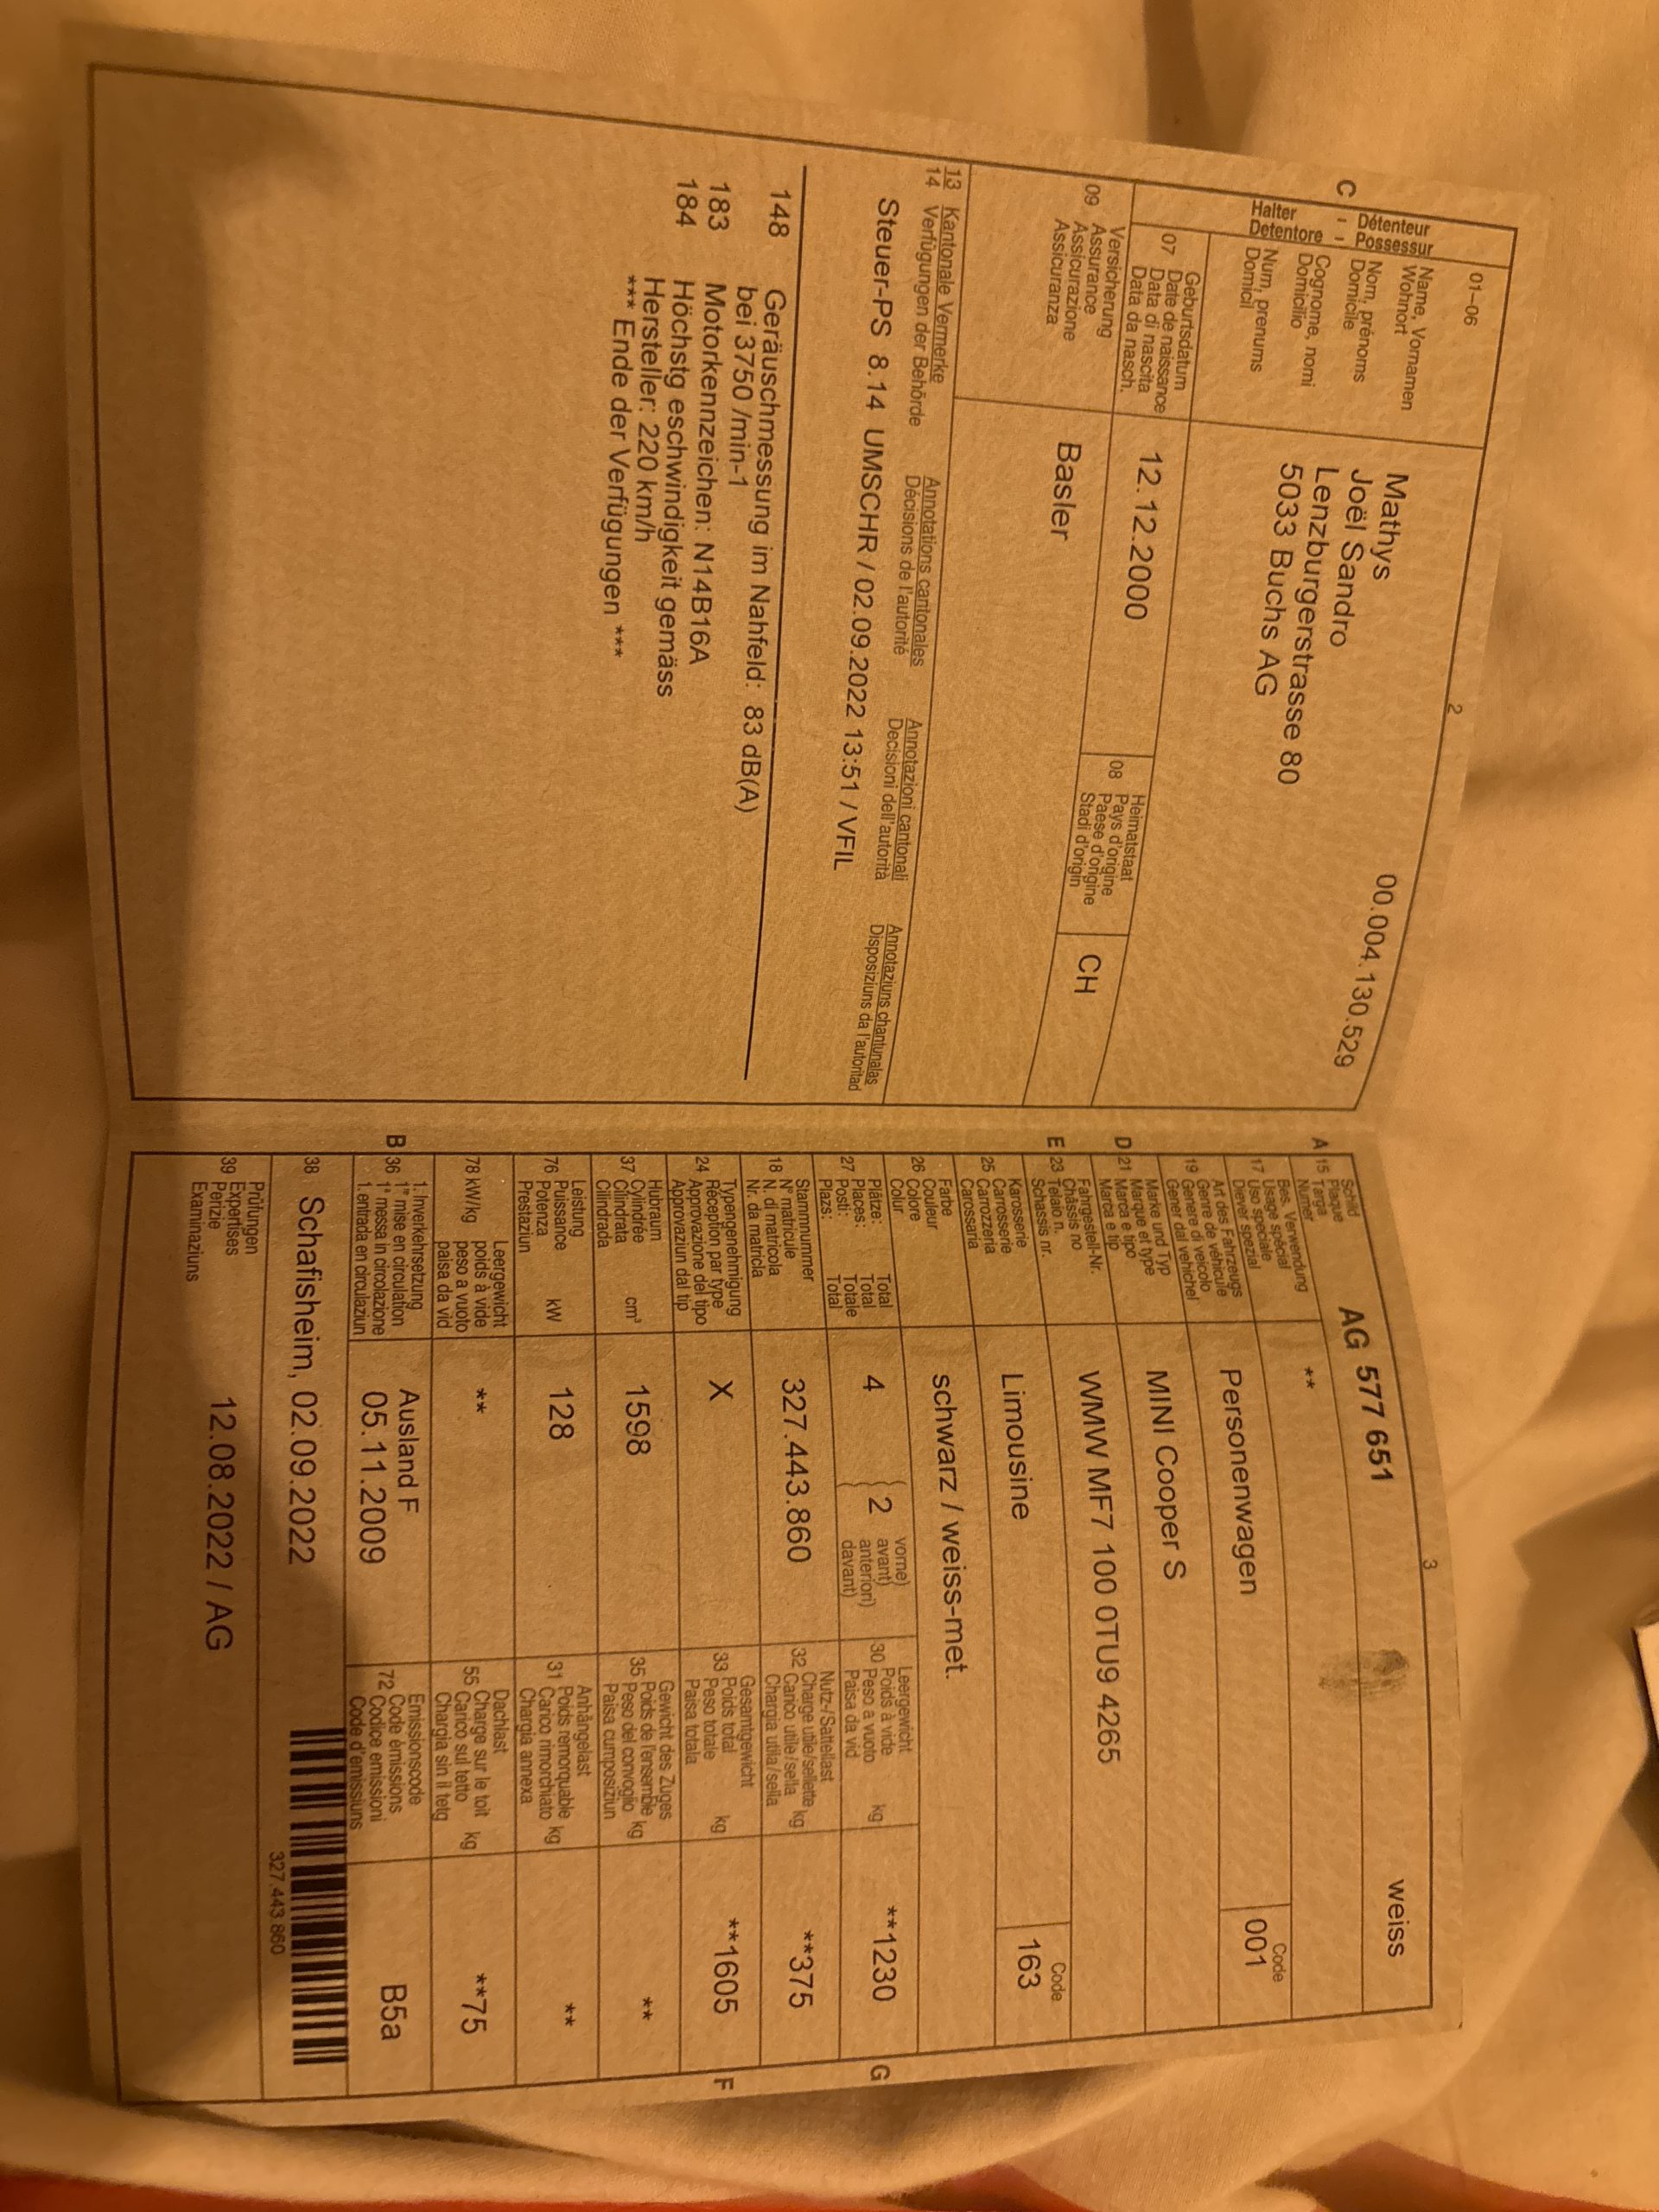 2
01–06
00.004.130.529
C
Halter
Detentore
-
-
Détenteur
Possessur
Name, Vornamen
Wohnort
Nom, prénoms
Domicile
Cognome, nomi
Domicilio
Num, prenums
Domicil
Mathys
Joël Sandro
Lenzburgerstrasse 80
5033 Buchs AG
07
Geburtsdatum
Date de naissance
Data di nascita
Data da nasch.
12.12.2000
08
Heimatstaat
Pays d'origine
Paese d'origine
Stadi d'origin
CH
09
Versicherung
Assurance
Assicurazione
Assicuranza
Basler
13 Kantonale Vermerke Annotations cantonales Annotazioni cantonali Annotaziuns chantunalas
14 Verfügungen der Behörde Décisions de l'autorité Decisioni dell'autorità Disposiziuns da l'autoritad
Steuer-PS 8.14 UMSCHR / 02.09.2022 13:51 / VFIL
148 Geräuschmessung im Nahfeld: 83 dB(A)
bei 3750 /min-1
183 Motorkennzeichen: N14B16A
184 Höchstg eschwindigkeit gemäss
Hersteller: 220 km/h
*** Ende der Verfügungen ***
3
A 15
Schild
Plaque
Targa
Numer
AG 577 651
weiss
17
Bes. Verwendung
Usage spécial
Uso speciale
Diever spezial
**
19
Art des Fahrzeugs
Genre de véhicule
Genere di veicolo
Gener dal vehichel
Personenwagen
Code
001
D 21
Marke und Typ
Marque et type
Marca e tipo
Marca e tip
MINI Cooper S
E 23
Fahrgestell-Nr.
Châssis no
Telaio n.
Schassis nr.
WMW MF7 100 0TU9 4265
25
Karosserie
Carrosserie
Carrozzeria
Carossaria
Limousine
Code
163
26
Farbe
Couleur
Colore
Colur
schwarz / weiss-met.
27
Plätze: Total
Places: Total
Posti: Totale
Plazs: Total
4
2
vorne)
avant)
anteriori)
davant)
30
Leergewicht
Poids à vide
Peso a vuoto
Paisa da vid
kg
**1230
G
18
Stammnummer
N° matricule
N. di matricola
Nr. da matricla
327.443.860
32
Nutz-/Sattellast
Charge utile/sellette
Carico utile/sella
Chargia utila/sella
kg
**375
24
Typengenehmigung
Réception par type
Approvazione del tipo
Approvaziun dal tip
X
33
Gesamtgewicht
Poids total
Peso totale
Paisa totala
kg
**1605
F
37
Hubraum
Cylindrée
Cilindrata
Cilindrada
cm³
1598
35
Gewicht des Zuges
Poids de l'ensemble
Peso del convoglio
Paisa cumposiziun
kg
**
76
Leistung
Puissance
Potenza
Prestaziun
kW
128
31
Anhängelast
Poids remorquable
Carico rimorchiato
Chargia annexa
kg
**
78 kW/kg
Leergewicht
poids à vide
peso a vuoto
paisa da vid
**
55
Dachlast
Charge sur le toit
Carico sul tetto
Chargia sin il tetg
kg
**75
B 36
1. Inverkehrsetzung
1re mise en circulation
1a messa in circolazione
1. entrada en circulaziun
Ausland F
05.11.2009
72
Emissionscode
Code émissions
Codice emissioni
Code d'emissiuns
B5a
38 Schafisheim, 02.09.2022
327.443 860
39
Prüfungen
Expertises
Perizie
Examinaziuns
12.08.2022 / AG